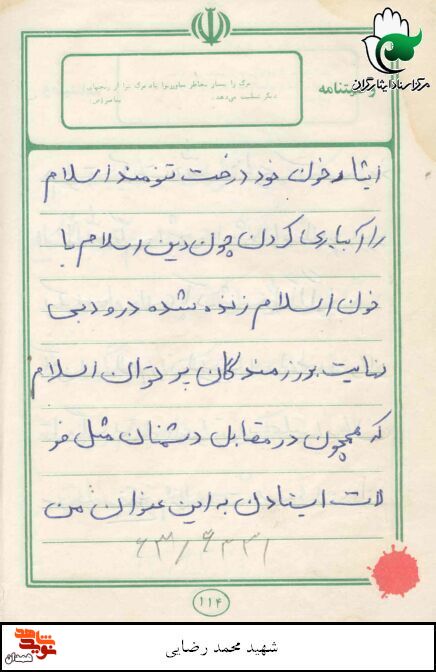 مرکز اسناد ایثارگران
وصیتنامه
مرگ را بسیار بخاطر بیاورید زیرا یاد مرگ شما را از رنجهای
دیگر تسلیت می‌دهد.
ایثار و خون خود درخت تنومند اسلام
را آبیاری کردن چون دین اسلام با
خون اسلام زنده شده درود بی
نهایت بر رزمندگان پر توان اسلام
که همچون در مقابل دشمنان مثل فو
لاد ایستادن به این عنوان من
۱۱۴
نوید شاهد
همدان
شهید محمد رضایی